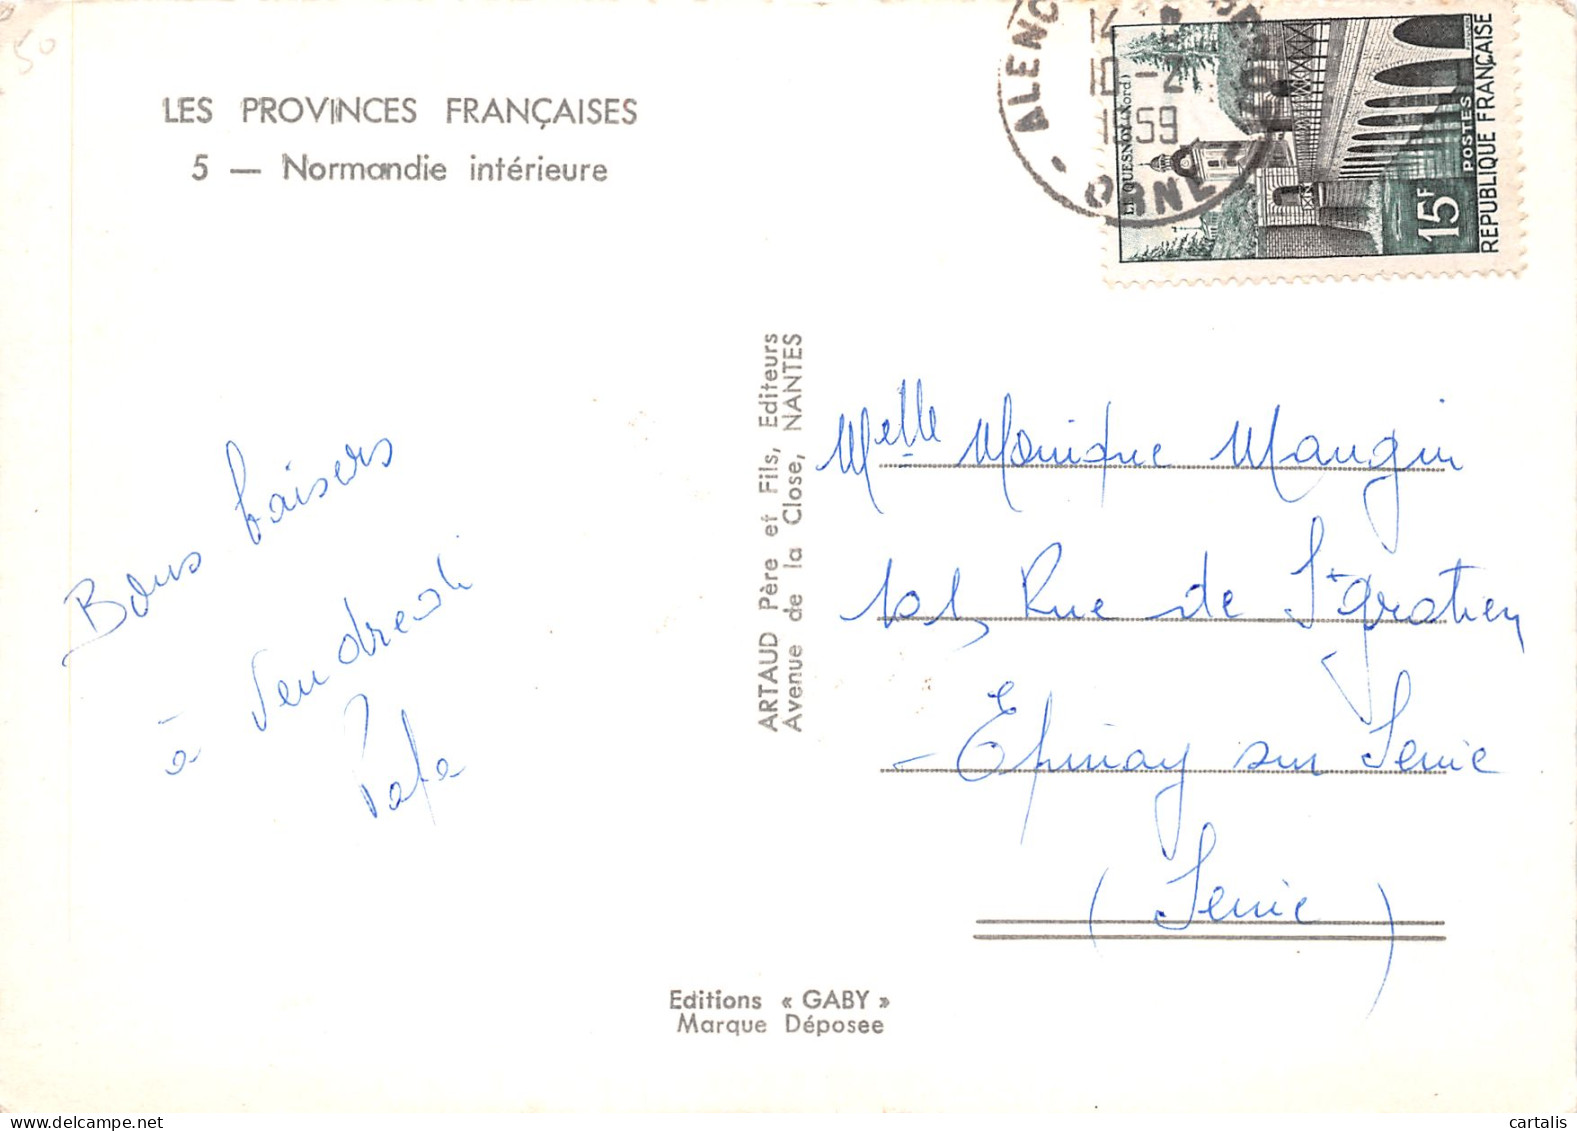 50
LES PROVINCES FRANÇAISES
5 — Normandie intérieure
ALENÇ
14
10 - 2
1959
ORNE
LE QUESNOY (Nord)
15F
POSTES
RÉPUBLIQUE FRANÇAISE
Bons baisers
à Vendredi
Papa
ARTAUD Père et Fils, Editeurs
Avenue de la Close, NANTES
Melle Monique Mangin
101, Rue de St gratien
- Epinay sur Seine
(Seine)
Editions « GABY »
Marque Déposee
cartalis